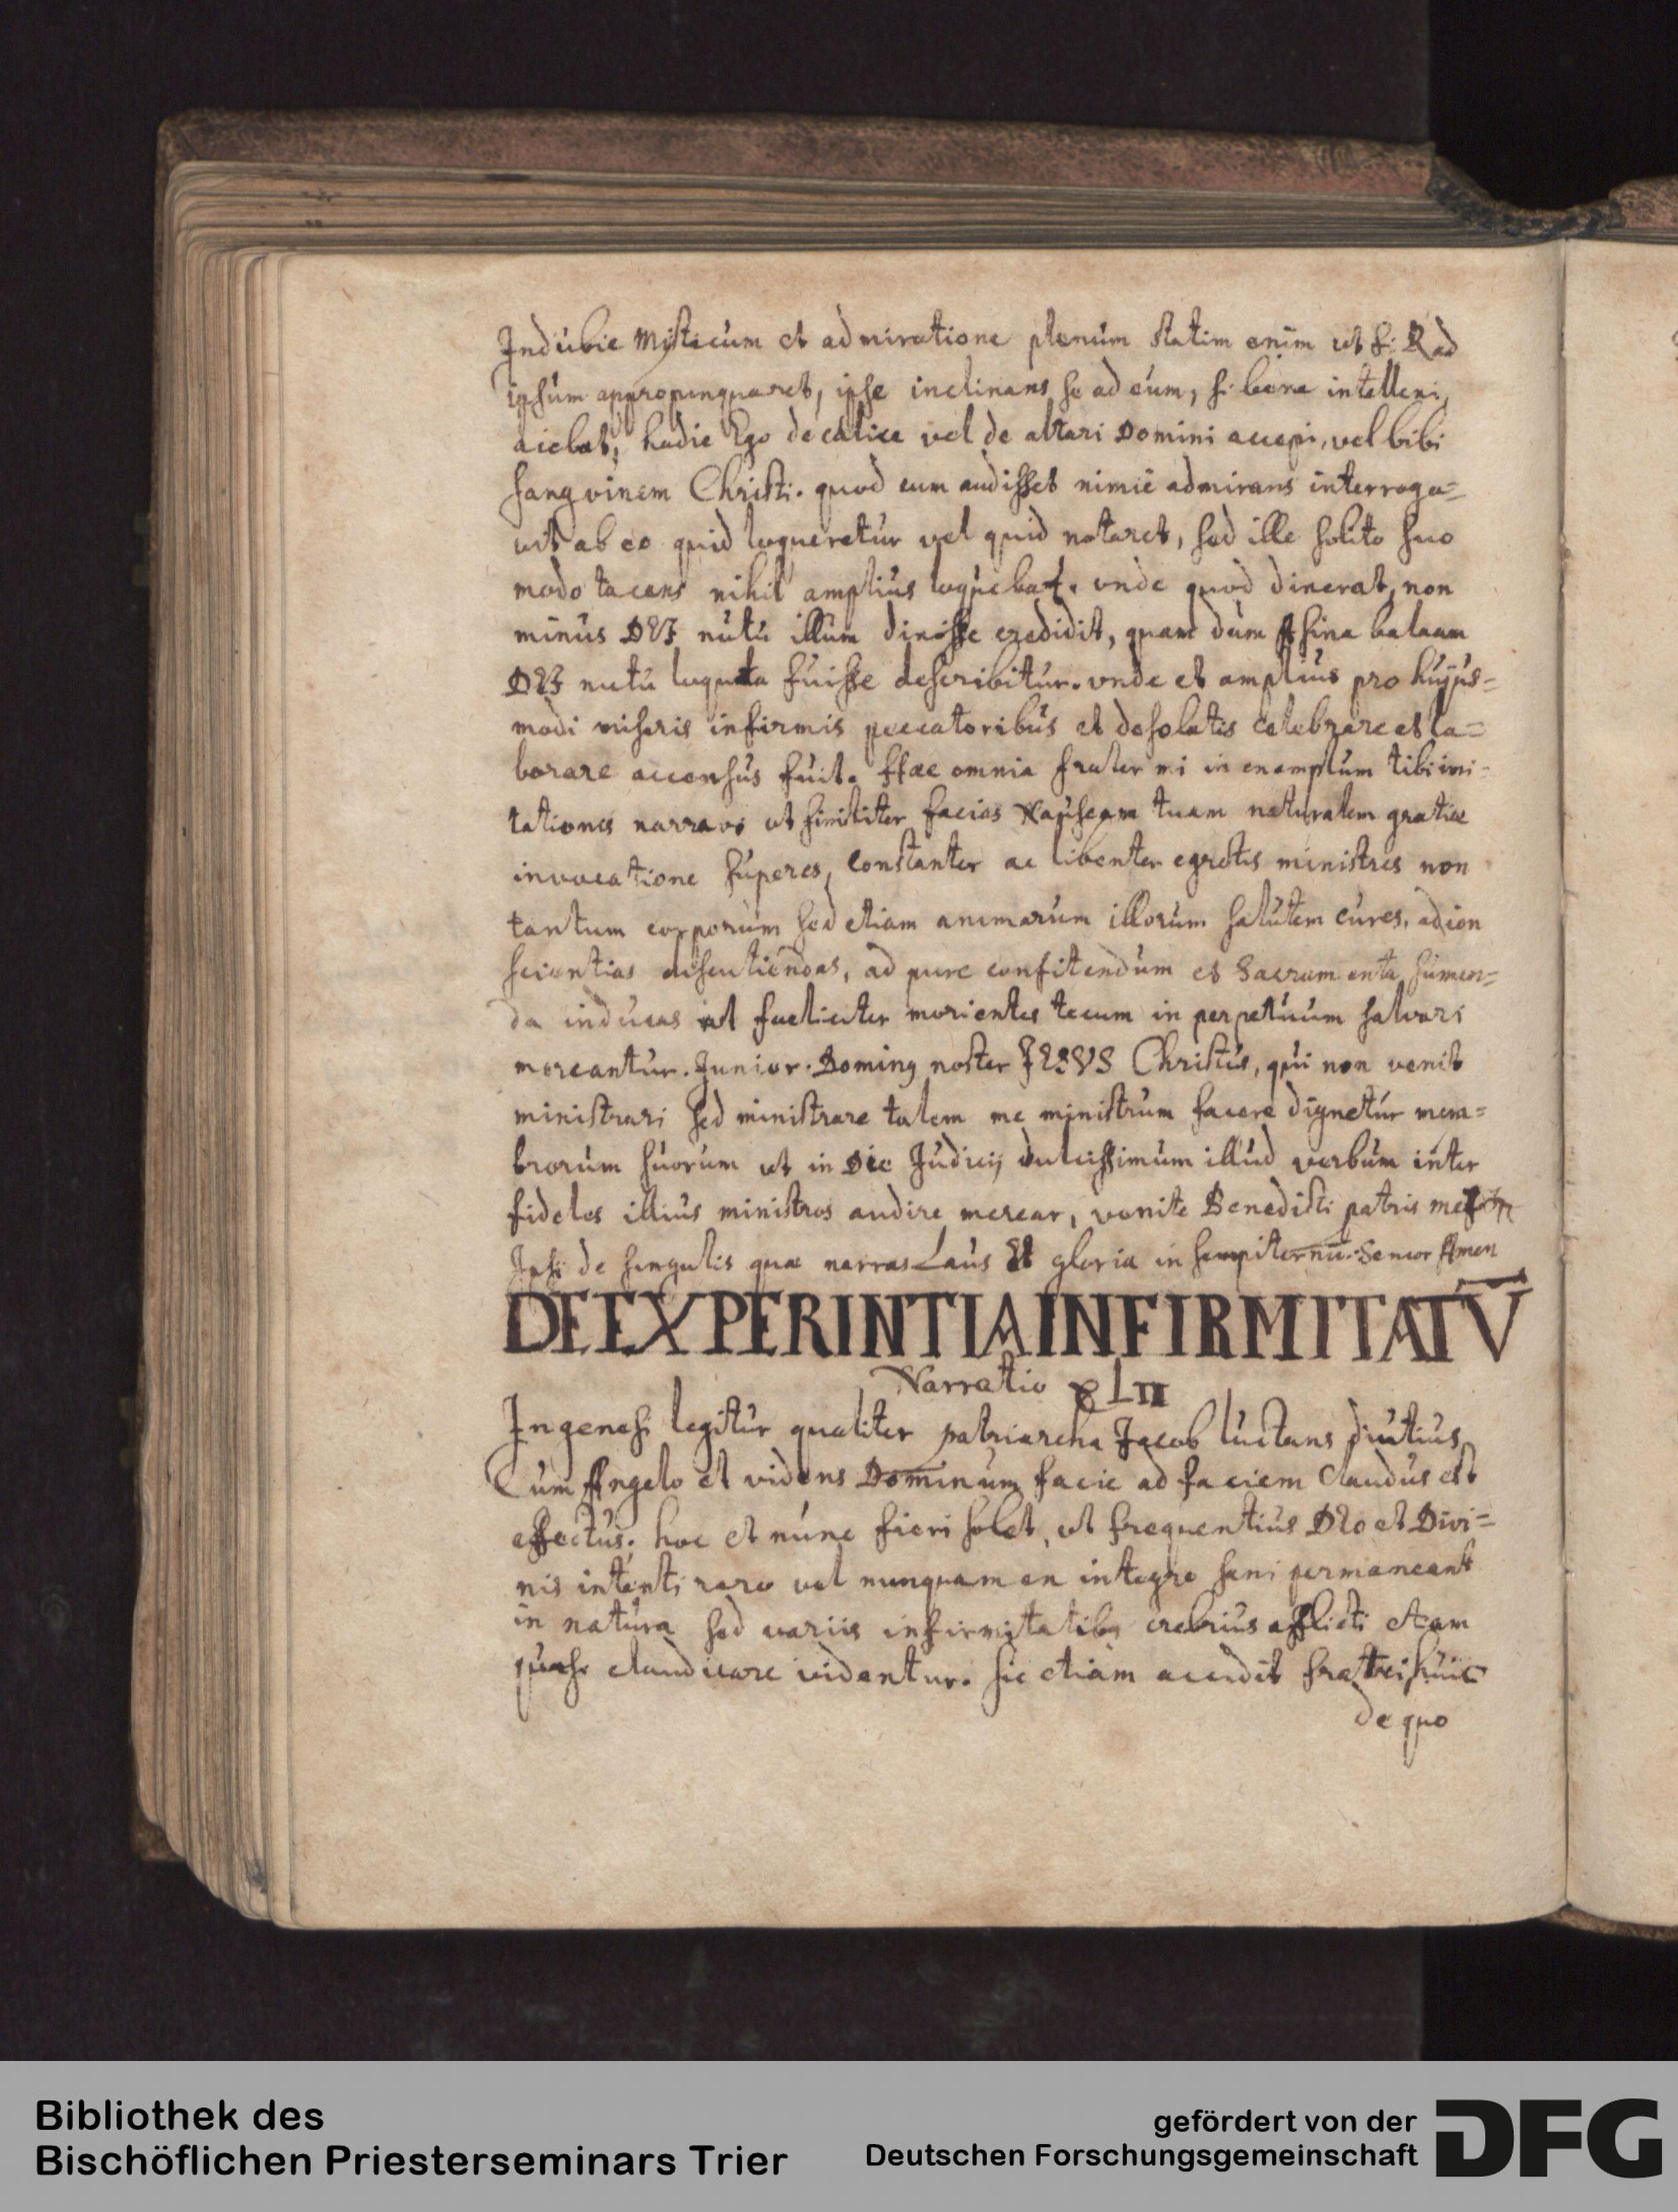 Indubie Misticum et admiratione plenum statim enim ut f. R ad
ipsum appropinquaret, ipse inclinans se ad eum, si bene intellexi,
aiebat, hodie Ego de calice vel de altari Domini accepi, vel bibi
sangvinem Christi. quod cum audisset nimie admirans interroga=
vit ab eo quid loqueretur vel quid notaret, sed ille solito suo
modo tacens nihil amplius loquebat. vnde quod dixerat, non
minus DEI nutu illum dixisse credidit, quam dum Asina balaam
DEI nutu loquuta fuisse describitur. vnde et amplius pro hujus=
modi miseris infirmis peccatoribus et desolatis celebrare et la=
borare accensus fuit. Hæc omnia frater mi in exemplum tibi imi=
tationis narravi ut similiter facias Nauseam tuam naturalem gratiæ
invocatione superes, Constanter ac libenter egrotis ministres non
tantum corporum sed etiam animarum illorum salutem cures, ad con
scientias discutiendas, ad pure confitendum et Sacramenta sumen=
da inducas ut fueliciter morientes tecum in perpetuum salvari
mereantur. Junior. Doming noster JESVS Christus, qui non venit
ministrari sed ministrare talem me ministrum facere dignetur mem=
brorum suorum ut in Die Judicij dulcissimum illud verbum inter
fideles illius ministros audire merear, venite Benedicti patris mei
Ipsi de singulis quæ narras Laus Et gloria in sempiternū. Senior Amen
DE EXPERINTIA INFIRMITATV̄
Narratio XLII
In genesi legitur qualiter patriarcha Jacob luctans diutius
Cum Angelo et videns Dominum facie ad faciem Claudus est
effectus. hoc et nunc fieri solet, ut frequentius DEo et Divi=
nis intenti raro vel nunquam ex integro sani permaneant
in natura sed variis infirmitatibg crebrius afflicti etiam
quasi claudicare videntur. sic etiam accidit fratri huic
de quo
Bibliothek des
Bischöflichen Priesterseminars Trier
gefördert von der
Deutschen Forschungsgemeinschaft
DFG